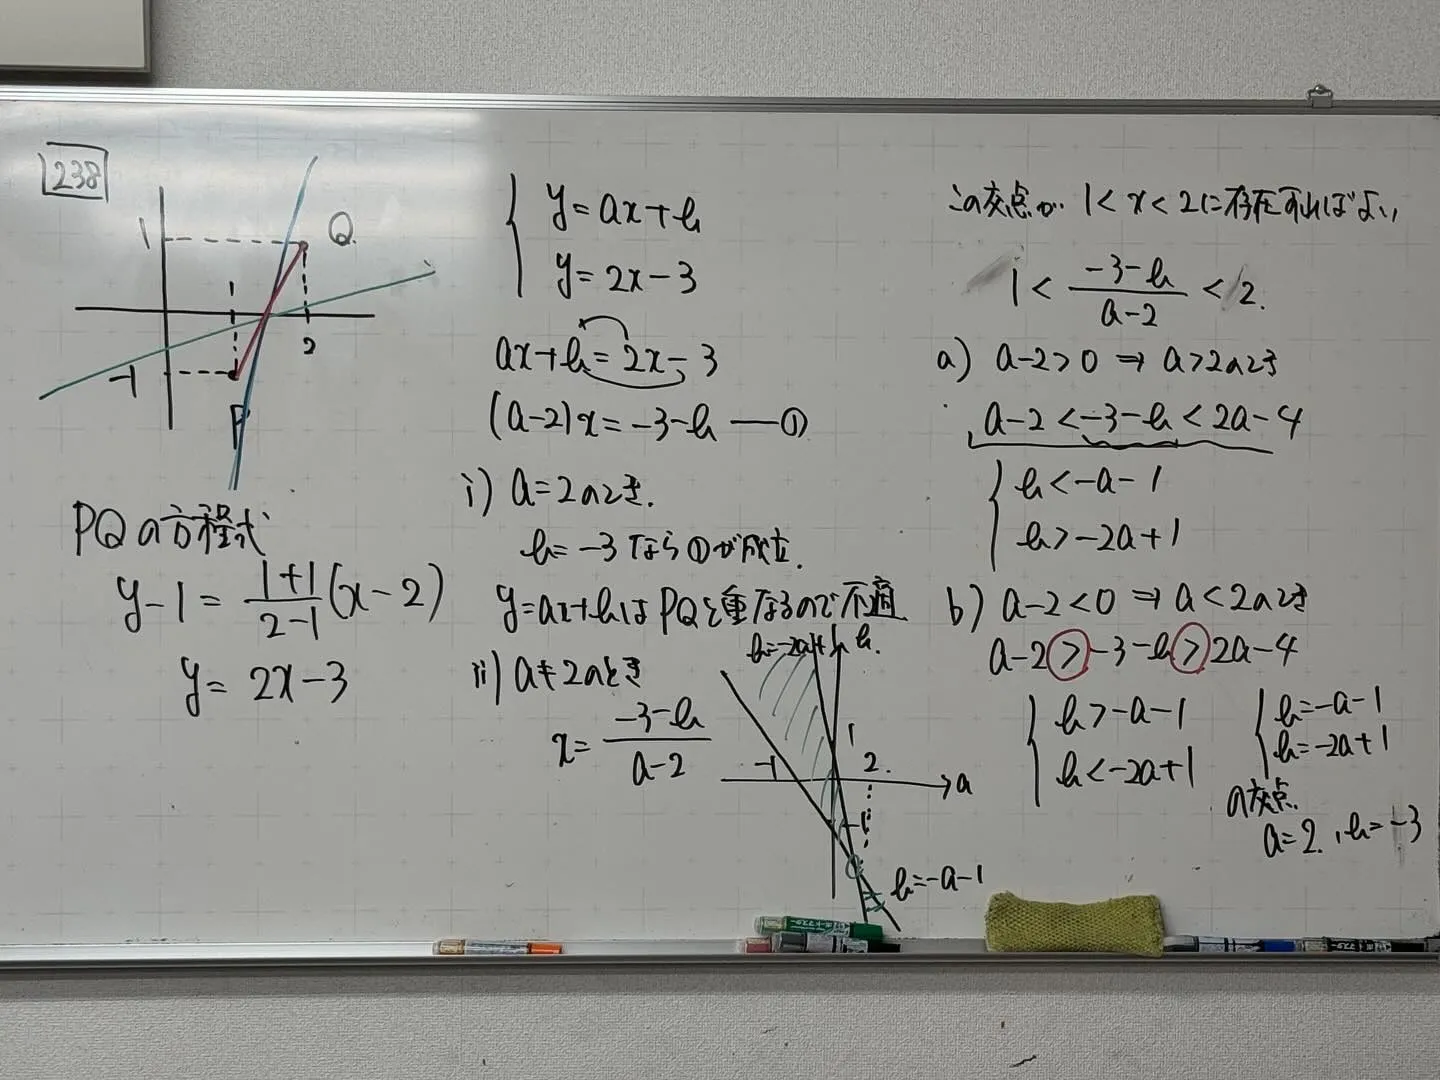 238
1
Q
1
2
-1
P
PQの方程式
y-1 = \frac{1+1}{2-1}(x-2)
y = 2x-3
{ y=ax+b
y=2x-3
ax+b=2x-3
(a-2)x=-3-b —①
i) a=2のとき.
b=-3 なら①が成立.
y=ax+bはPQと重なるので不適
ii) a≠2のとき
x= \frac{-3-b}{a-2}
b=-2a+1
b.
1
-1
2.
a
-1
b=-a-1
この交点が 1<x<2に存在すればよい
1 < \frac{-3-b}{a-2} < 2.
a) a-2>0 ⇒ a>2のとき
a-2<-3-b<2a-4
{ b<-a-1
b>-2a+1
b) a-2<0 ⇒ a<2のとき
a-2>-3-b>2a-4
{ b>-a-1
b<-2a+1
{ b=-a-1
b=-2a+1
の交点.
a=2, b=-3